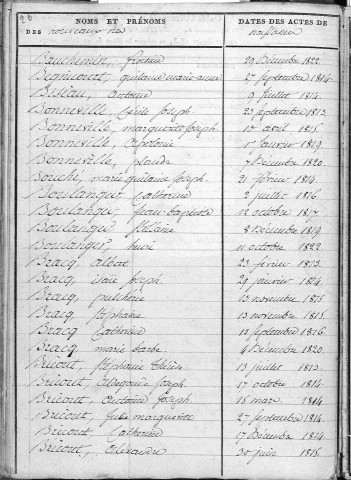 28
NOMS ET PRÉNOMS
DES nouveaux nés
DATES DES ACTES DE
naissance
Bauchenin,
29 Décembre 1822.
Begnicourt, guilaine marie anne
27 Septembre 1814.
antoine
9 juillet 1814.
Bonneville, Joseph
23 Septembre 1813.
Bonneville, marguerite Joseph
17 avril 1815.
Bonneville, apolonie
1er Janvier 1819.
Bonneville, placide
7 Décembre 1820.
Bouché, marie guilaine Joseph
21 février 1814.
Boulanger, Catherine
2 juillet 1816.
Boulanger, jean baptiste
12 octobre 1817.
Boulanger,
8 Décembre 1819.
Boulanger, henri
11 octobre 1822.
Bracq, albert
23 février 1813.
Bracq, Joseph
29 janvier 1814.
Bracq, pulcherie
13 novembre 1815.
Bracq, Stéphanie
13 novembre 1815.
Bracq Catherine
12 Septembre 1816.
Bracq, marie barbe
4 Décembre 1820.
Bricout, Stéphanie
13 juillet 1813.
Bricout, Joseph
17 octobre 1814.
Bricout, antoine Joseph
15 mars 1814
Bricout, marguerite
27 Septembre 1814.
Bricout, Catherine
17 Décembre 1814.
Bricout, Alexandre
30 juin 1815.